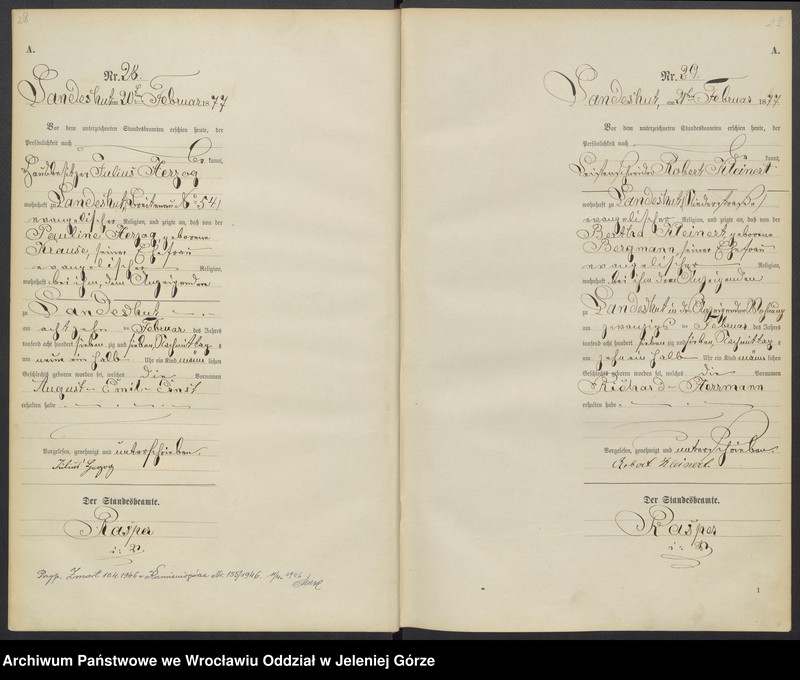 28
A.
Nr. 28.
Landeshut am 20ten Februar 1877
Vor dem unterzeichneten Standesbeamten erschien heute, der
Persönlichkeit nach
kannt,
Hausbesitzer Julius Herzog
wohnhaft zu Landeshut, Breitenau No 54/
evangelischer Religion, und zeigte an, daß von der
Pauline Herzog, geborene
Krause, seiner Ehefrau
evangelischer Religion,
wohnhaft bei ihm, dem Anzeigenden
zu Landeshut
am achtzehn ten Februar des Jahres
tausend acht hundert sieben zig und sieben, Nachmittag s
um neun ein halb Uhr ein Kind männ lichen
Geschlechts geboren worden sei, welches die Vornamen
August Emil Ernst
erhalten habe
Vorgelesen, genehmigt und unterschrieben.
Julius Herzog
Der Standesbeamte.
Kasper
i. V.
Zmarł 10.4.1946 w Kamiennogórze Nr. 155/1946.
29
A.
Nr. 29.
Landeshut, am 21ten Februar 1877
Vor dem unterzeichneten Standesbeamten erschien heute, der
Persönlichkeit nach
kannt,
Leistenschneider Robert Kleinert
wohnhaft zu Landeshut, Niederstraße/
evangelischer Religion, und zeigte an, daß von der
Bertha Kleinert, geborene
Bergmann, seiner Ehefrau
evangelischer Religion,
wohnhaft bei ihm dem Anzeigenden
zu Landeshut in des Anzeigenden Wohnung
am zwanzigs ten Februar des Jahres
tausend acht hundert sieben zig und sieben, Nachmittag s
um zehn ein halb Uhr ein Kind männ lichen
Geschlechts geboren worden sei, welches die Vornamen
Richard Herrmann
erhalten habe
Vorgelesen, genehmigt und unterschrieben.
Robert Kleinert.
Der Standesbeamte.
Kasper
i. V.
1
Archiwum Państwowe we Wrocławiu Oddział w Jeleniej Górze